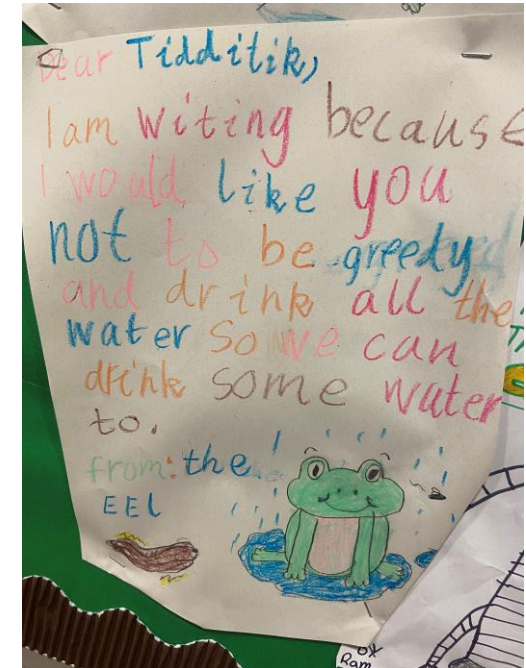 Dear Tidditik,
I am Witing because
I would like you
not to be greedy
and drink all the
water So we can
drink some water
to.
from: the
EEL
OX
Ram